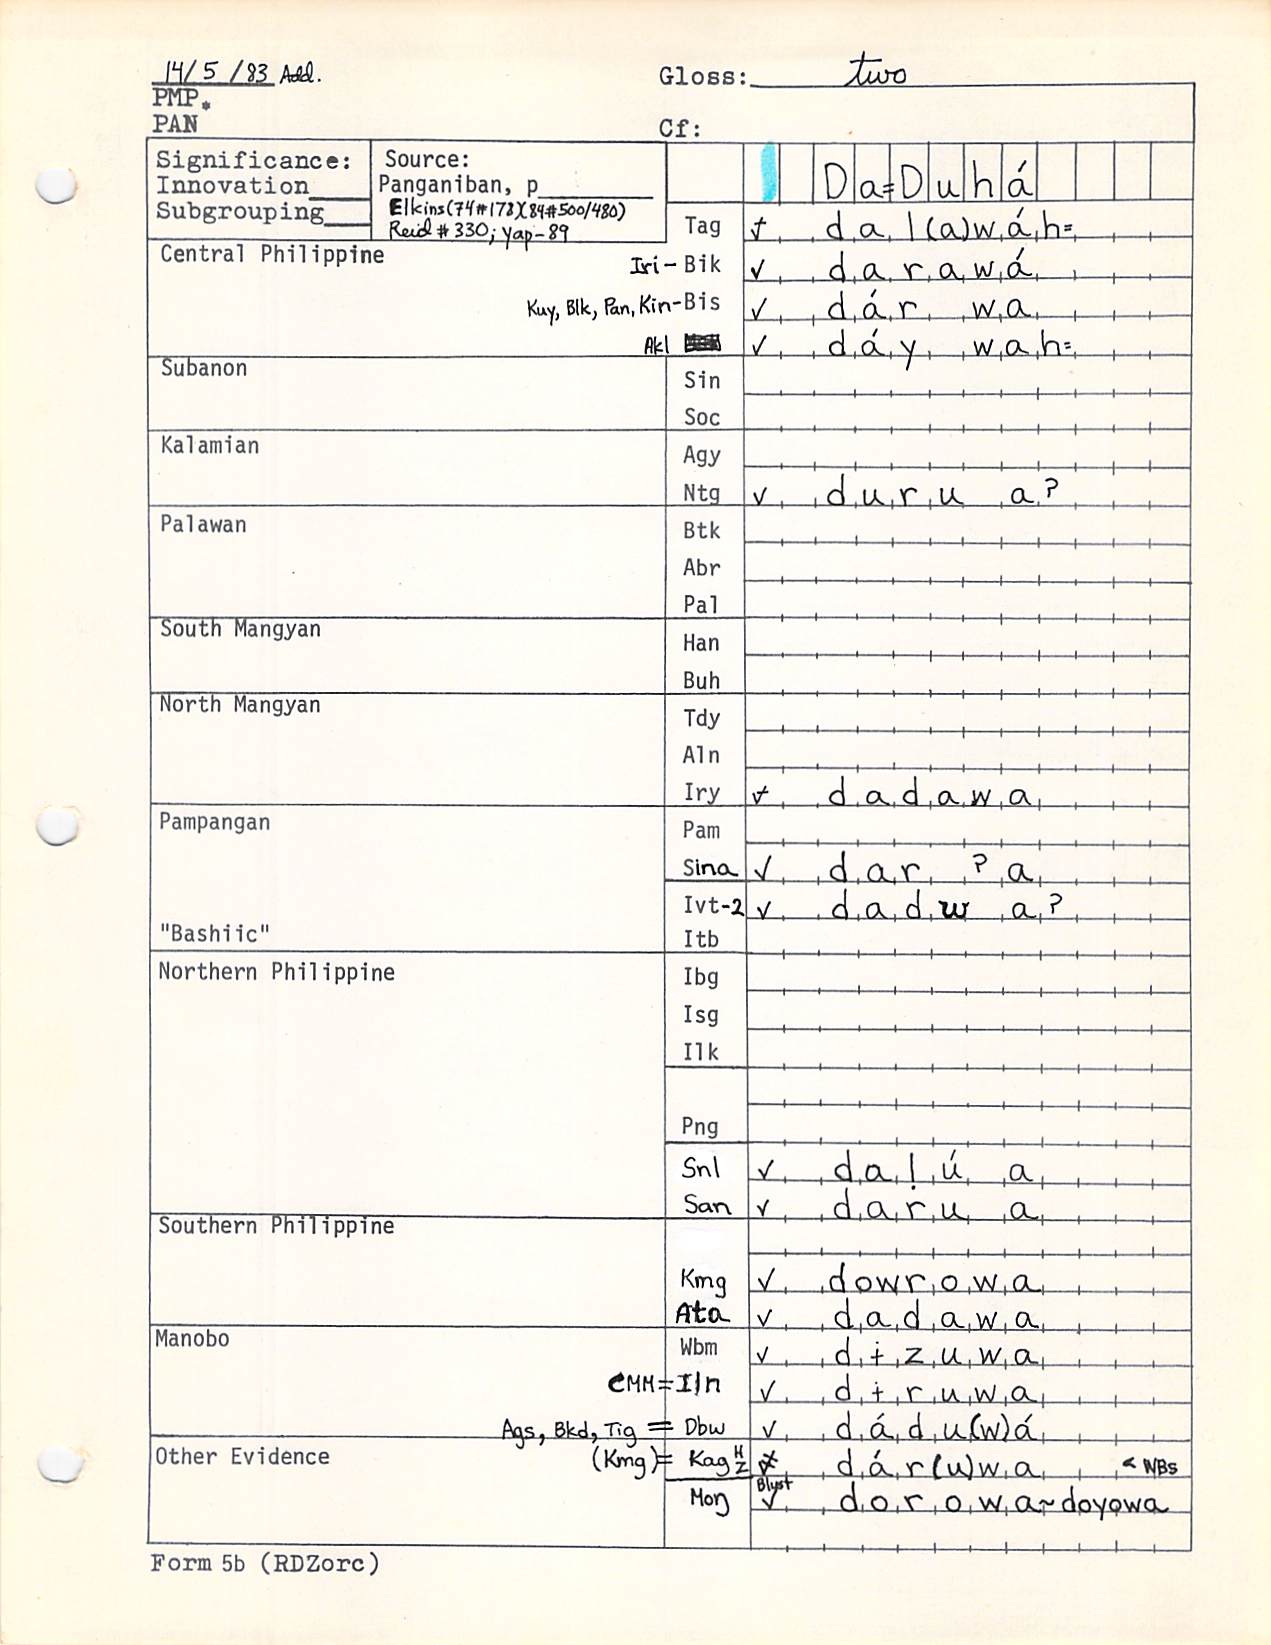 14/5/83 Add. Gloss: two
PMP *
PAN Cf:
Significance: Source: Da=Duhá
Innovation Panganiban, p
Subgrouping Elkins(74#178)(84#500/480)
Reid #330; Yap-89
Tag dal(a)wáh=
Central Philippine
Iri-Bik ✓ darawá
Kuy, Blk, Pan, Kin-Bis ✓ dár wa
Akl ✓ dáy wah=
Subanon
Sin
Soc
Kalamian
Agy
Ntg ✓ duru a?
Palawan
Btk
Abr
Pal
South Mangyan
Han
Buh
North Mangyan
Tdy
Aln
Iry dadawa
Pampangan Pam
Sina ✓ dar ?a
Ivt-2 ✓ dadw a?
"Bashiic" Itb
Northern Philippine Ibg
Isg
Ilk
Png
Snl ✓ daḷú a
San ✓ daru a
Southern Philippine
Kmg ✓ dowrowa
Ata ✓ dadawa
Manobo Wbm ✓ dɨzuwa
CMM=Iln ✓ dɨruwa
Ags, Bkd, Tig = Dbw ✓ dádu(w)á
Other Evidence (Kmg)= Kag H Z dár(u)wa < WBs
Moŋ Blust ✓ dorowa~doyowa
Form 5b (RDZorc)